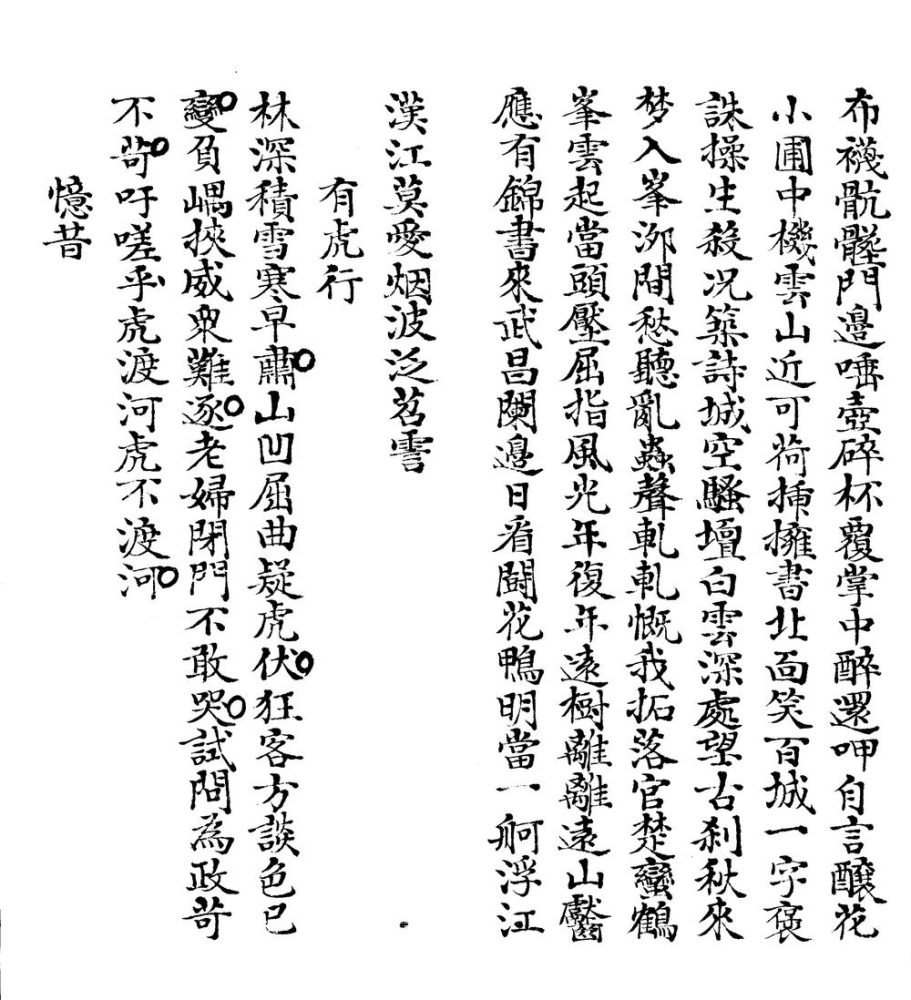 布襪骯髒門邊唾壺碎杯覆掌中醉還呷自言釀花
小圃中機雲山近可荷揷擁書北面笑百城一字褒
誅操生殺况築詩城空騷壇白雲深處望古刹秋來
梦入峯泖間愁聽亂蟲聲軋軋慨我拓落官楚蠻鶴
峯雲起當頭壓屈指風光年復年遠樹離離遠山
應有錦書來武昌闌邊日看鬪花鴨明當一舸浮江
漢江莫愛烟波泛苕霅
有虎行
林深積雪寒早肅山凹屈曲疑虎伏狂客方談色已
變負嵎挾威衆難逐老婦閉門不敢哭試問為政苛
不苛吁嗟乎虎渡河虎不渡河
憶昔